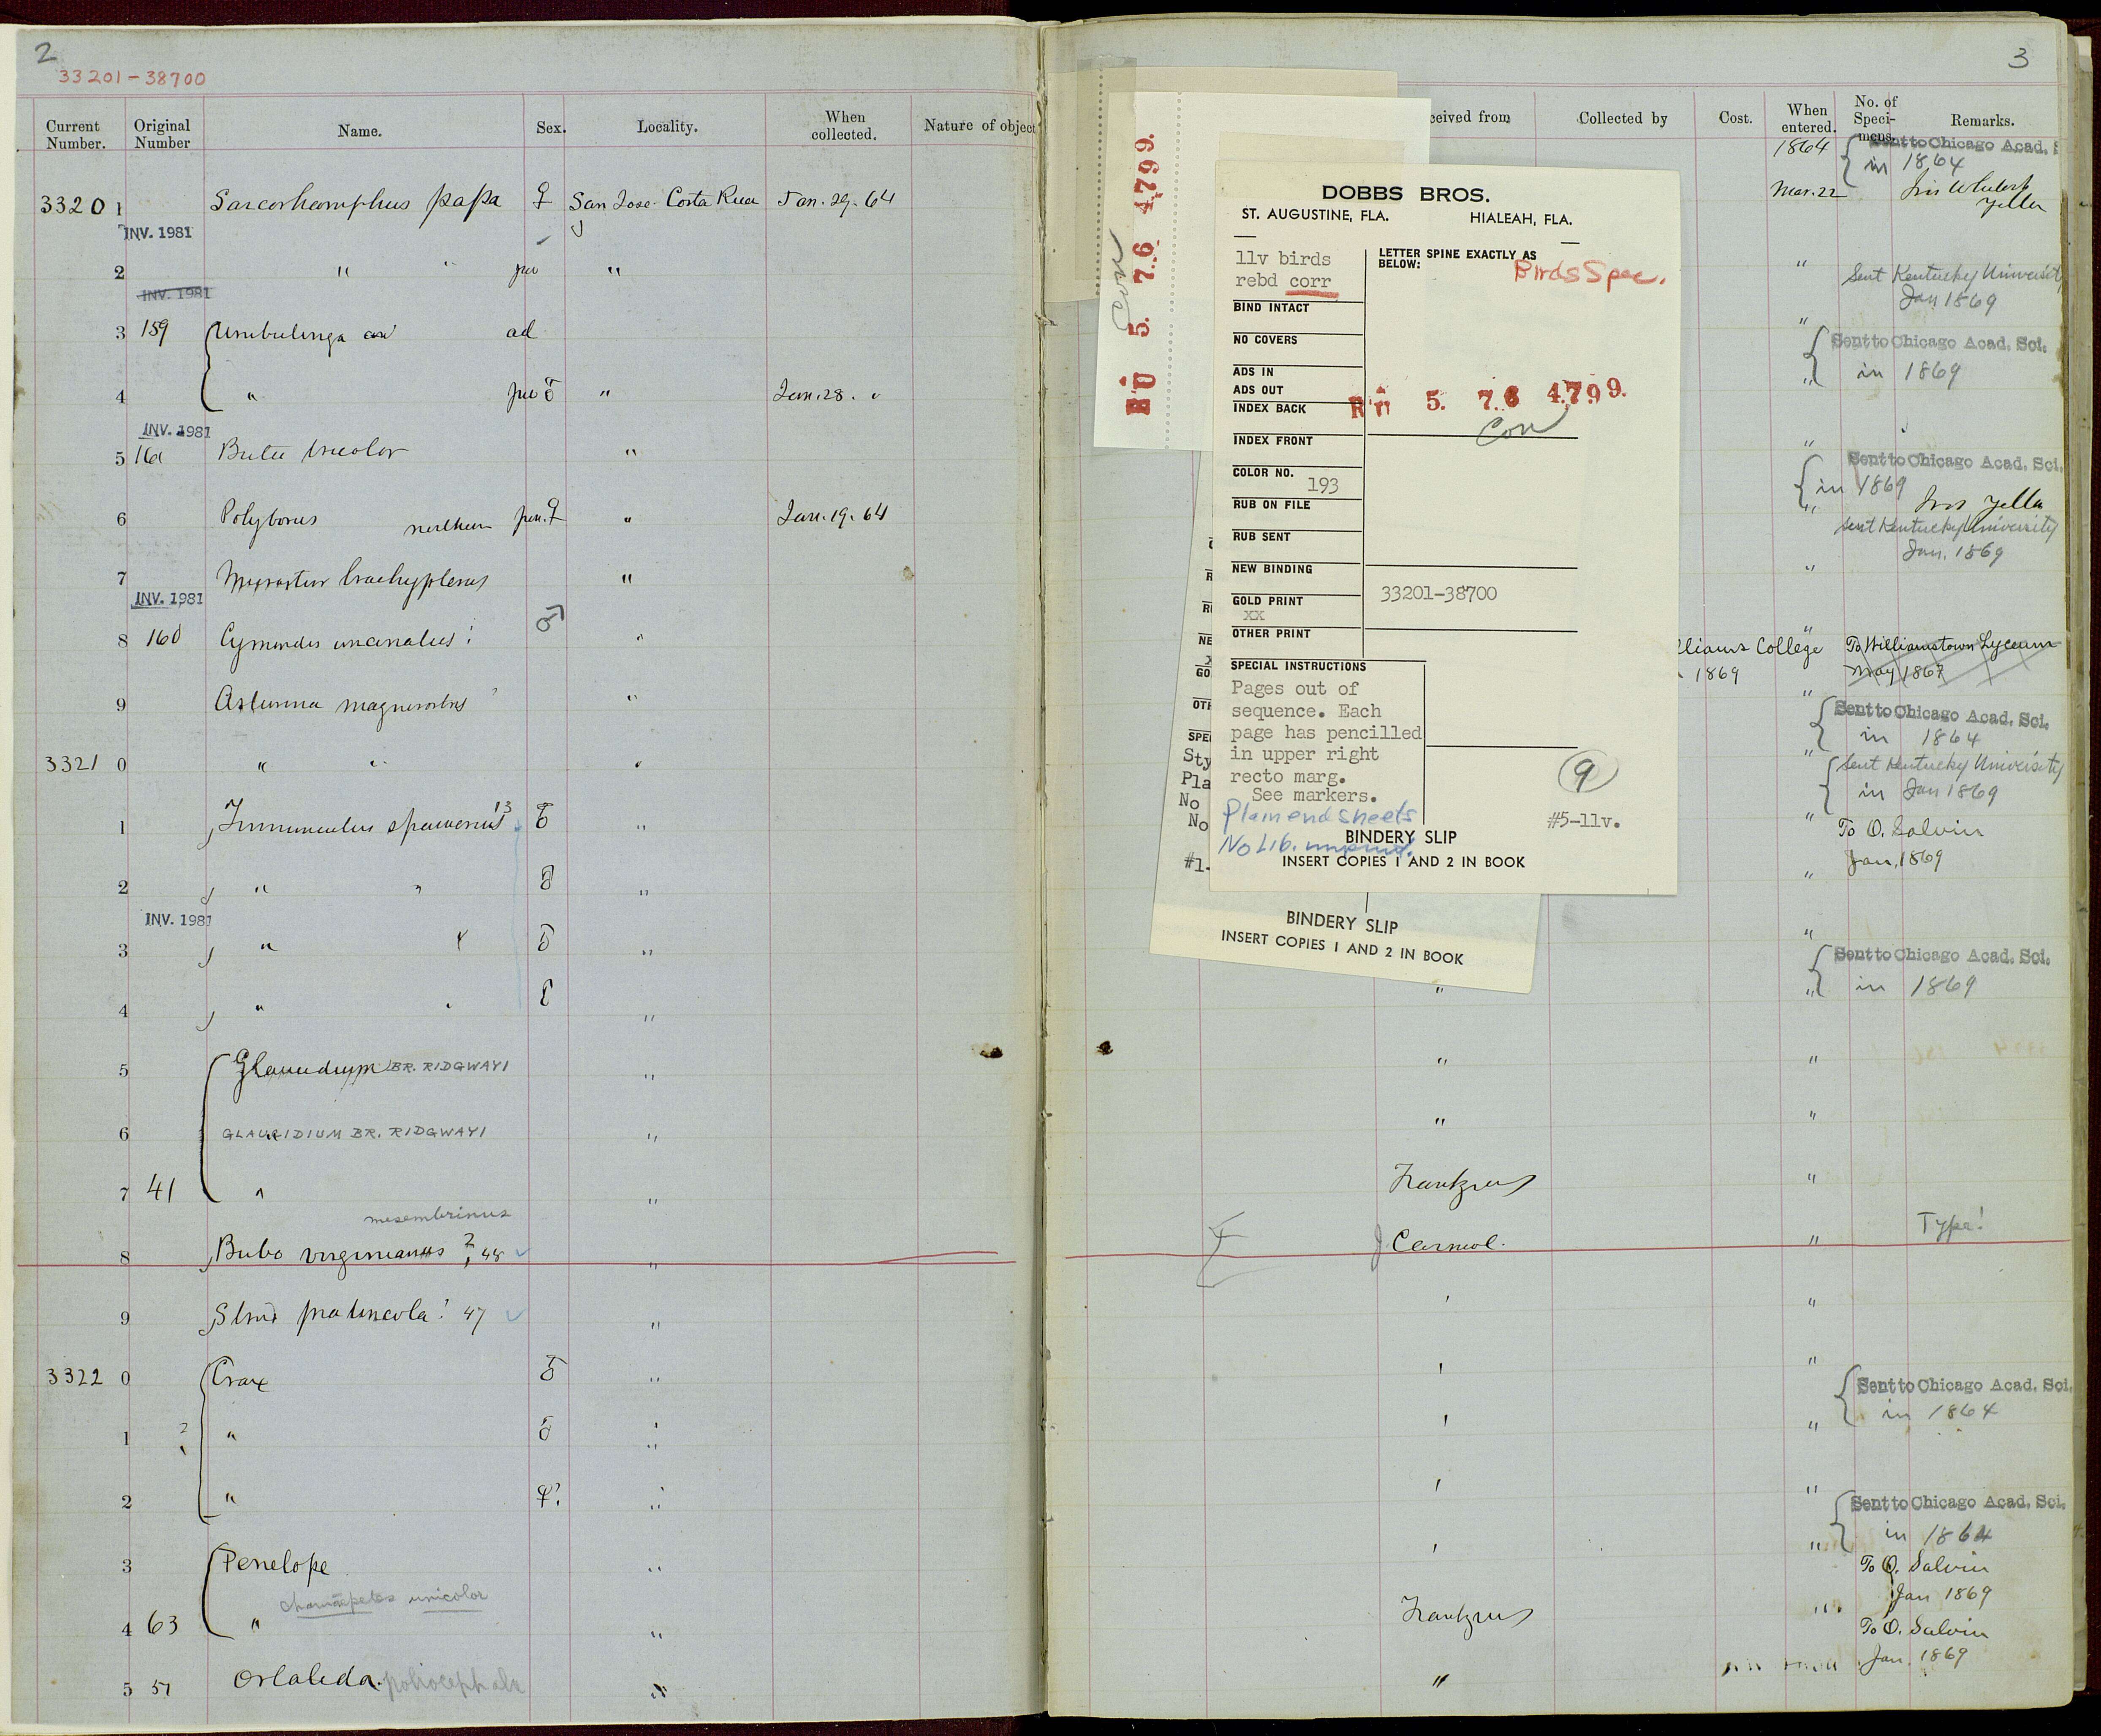 2
33201-38700
Current Number. Original Number Name. Sex. Locality. When collected. Nature of object
33201 Sarcorhamphus papa ♀ San Jose Costa Rica Jan. 29. 64
INV. 1981
2 " " juv "
INV. 1981
3 159 ad
4 " juv "  Jan. 28. "
INV. 1981
5 "
6 Polyborus northern jun. ♀ " Jan. 19. 64
7 Micrastur brachypterus "
INV. 1981
8 160 Cymindis uncinatus ♂ "
9 Asturina magnirostris "
33210 " " "
1 Tinnunculus sparverius 13 "
2 " " "
INV. 1981
3 " "
4 " " "
5 Glaucidium BR. RIDGWAYI "
6 GLAUCIDIUM BR. RIDGWAYI "
7 41 " "
mesembrinus
8 Bubo virginianus ? 48 "
9 Strix pratincola? 47 "
33220 Crax "
1 " "
2 " ♀? "
3 Penelope "
Chamaepetes unicolor
4 63 " "
5 51 Ortalida. poliocephala "
3
ceived from Collected by Cost. When entered. No. of Speci-mens. Remarks.
1864 Sent to Chicago Acad. S
in 1864
Mar. 22
" Sent Kentucky University
Jan 1869
" Sent to Chicago Acad. Sci.
" in 1869
" Sent to Chicago Acad. Sci.
in 1869
"
Sent Kentucky University
Jan. 1869
"
" lliams College To Williamstown Lyceum
1869 May 1867
" Sent to Chicago Acad. Sci.
in 1864
" Sent Kentucky University
in Jan 1869
" To O. Salvin
Jan, 1869
"
"
Sent to Chicago Acad. Sci.
" " in 1869
" "
" "
Frantzius "
J. Carmiol. " Type!
"
"
Sent to Chicago Acad. Sci.
" in 1864
"
Sent to Chicago Acad. Sci.
" in 1864
To O. Salvin
Jan 1869
Frantzius "
To O. Salvin
Jan. 1869
"
5. 7.6 4.799.
DOBBS BROS.
ST. AUGUSTINE, FLA. HIALEAH, FLA.
llv birds
rebd corr
LETTER SPINE EXACTLY AS BELOW:
Birds Spec.
BIND INTACT
NO COVERS
ADS IN
ADS OUT
INDEX BACK
5. 7.6 4.799.
INDEX FRONT
COLOR NO.
193
RUB ON FILE
RUB SENT
NEW BINDING
GOLD PRINT
XX
33201-38700
OTHER PRINT
SPECIAL INSTRUCTIONS
Pages out of
sequence. Each
page has pencilled
in upper right
recto marg.
See markers.
9
Plain end sheets
No Lib. imprint.
#5-11v.
BINDERY SLIP
INSERT COPIES 1 AND 2 IN BOOK
NE
GO
OTH
SPE
Sty
Pla
No
No
#1.
BINDERY SLIP
INSERT COPIES 1 AND 2 IN BOOK